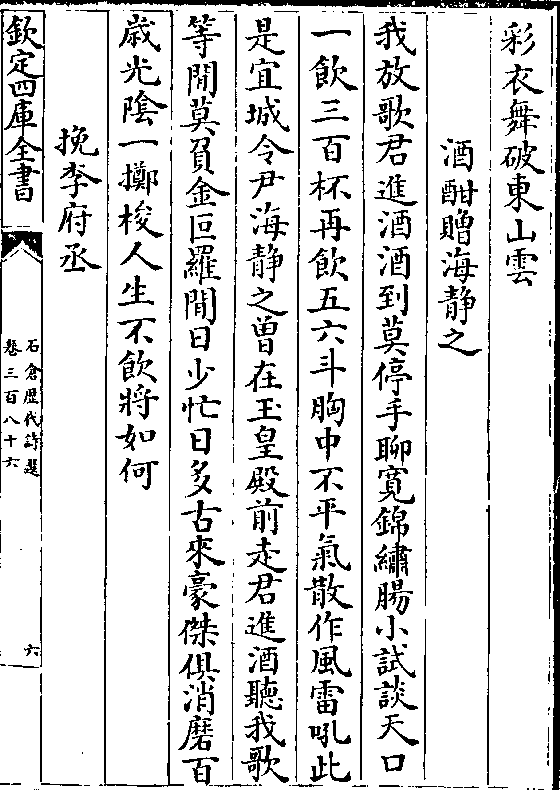 彩衣舞破東山雲
酒酣贈海靜之
我放歌君進酒酒到莫停手聊寛錦繡腸小試談天口
一飲三百杯再飲五六斗胸中不平氣散作風雷吼此
是宜城令尹海靜之曽在玉皇殿前走君進酒聽我歌
等閒莫負金叵羅閒日少忙日多古來豪傑俱消磨百
歳光陰一擲梭人生不飲將如何
挽李府丞
欽定四庫全書
石倉歴代詩選
卷三百八十六
六